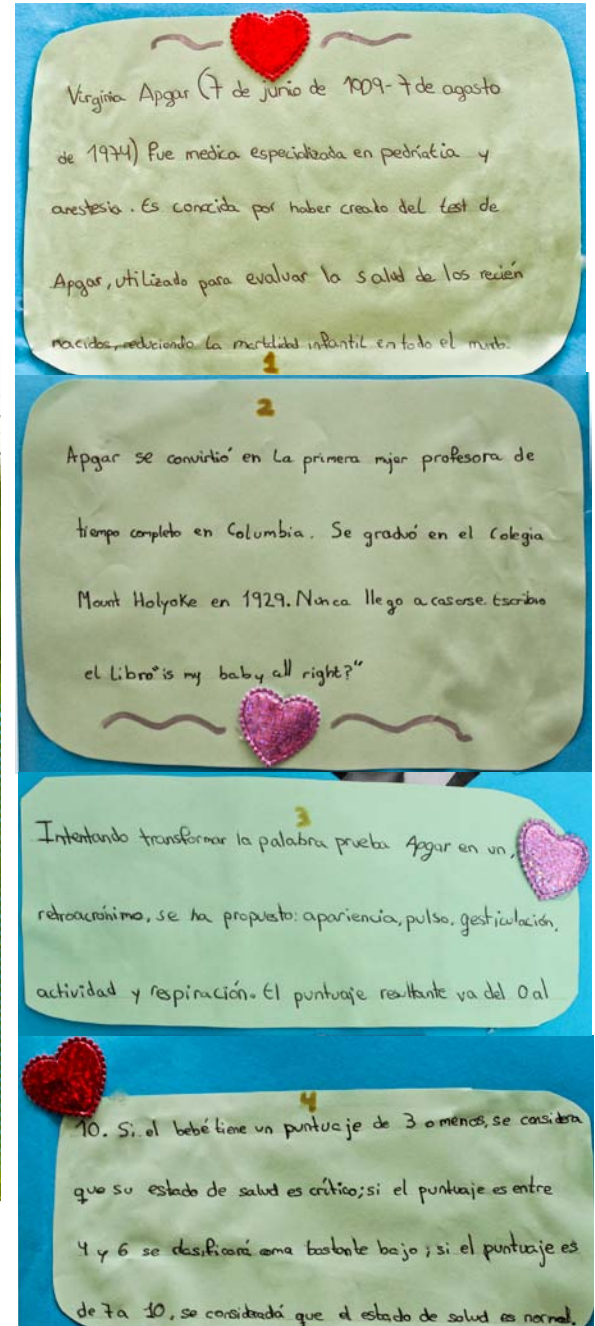 Virginia Apgar (7 de junio de 1909-7 de agosto
de 1974) Fue medica especializada en pedriatia y
anestesia. Es conocida por haber creato del test de
Apgar, utilizado para evaluar la salud de los recién
nacidos, reduciendo la mortalidad infantil en todo el
1
2
Apgar se convirtió en la primera mjer profesora de
tiempo completo en Columbia. Se graduó en el Colegia
Mount Holyoke en 1929. Nunca llego a casarse. Escribio
el Libro "is my baby all right?"
3
Intentando transformar la palabra prueba Apgar en un,
retroacrónimo, se ha propuesto: apariencia, pulso, gesticulación,
actividad y respiración. El puntuaje resultante va del 0 al
4
10. Si el bebé tiene un puntuaje de 3 o menos, se considera
que su estado de salud es crítico; si el puntuaje es entre
4 y 6 se clasificará como bastante bajo; si el puntuaje es
de 7 a 10, se considerá que el estado de salud es normal.